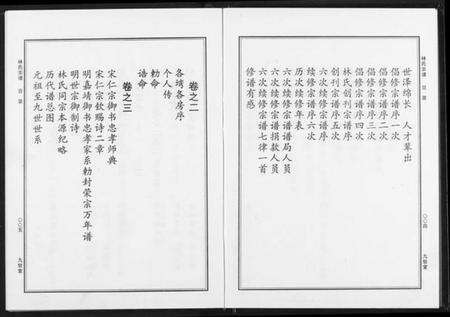 林氏宗谱 目录
世泽绵长 人才辈出
倡修宗谱序一次
倡修宗谱序二次
倡修宗谱序三次
倡修宗谱序四次
林氏创刊宗谱序
创刊宗谱序五次
六次续修宗谱序
续修宗谱序六次
历次续修年表
六次续修宗谱谱局人员
六次续修宗谱捐款人员
六次续修宗谱七律一首
修谱有感
〇〇四
九牧堂
林氏宗谱 目录
卷之二
各塆各房序
个人传
勅命
诰命
卷之三
宋仁宗御书忠孝师典
宋仁宗钦赐诗二章
明嘉靖御书忠孝家系勅封荣宗万年谱
明世宗御制诗
林氏同宗本源纪略
历代谱总图
元祖至九世世系
〇〇五
九牧堂